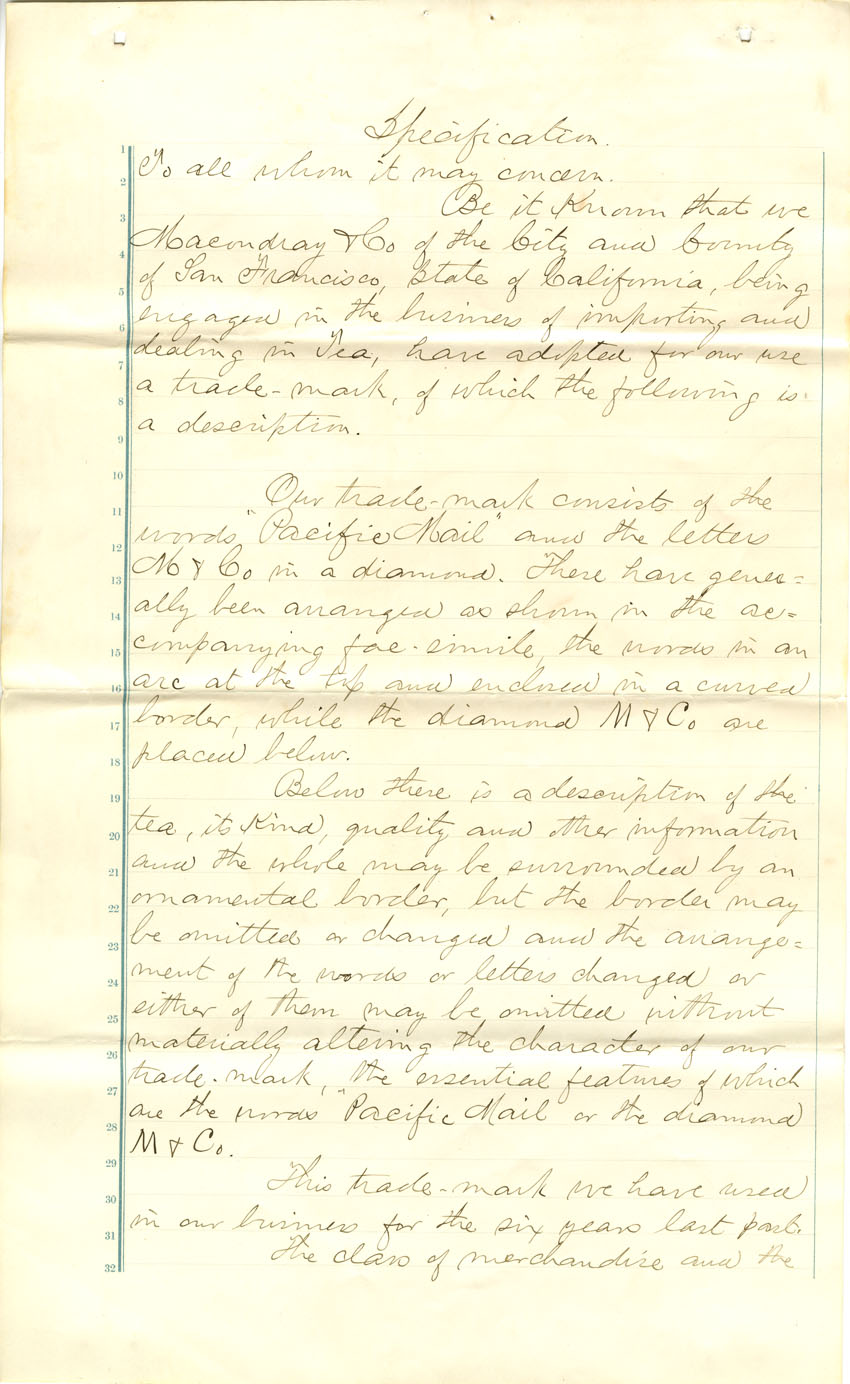 Specification.
To all whom it may concern.
Be it Known that we
Macondray & Co of the City and County
of San Francisco, State of California, being
engaged in the business of importing and
dealing in Tea, have adopted for our use
a trade-mark, of which the following is
a description.
Our trade-mark consists of the
words "Pacific Mail" and the letters
M & Co in a diamond. These have gener=
ally been arranged as shown in the ac=
companying fac-simile, the words in an
arc at the top and enclosed in a curved
border, while the diamond M & Co are
placed below.
Below there is a description of the
tea, its Kind, quality and other information
and the whole may be surrounded by an
ornamental border, but the border may
be omitted or changed and the arrange=
ment of the words or letters changed or
either of them may be omitted without
materially altering the character of our
trade-mark, the essential features of which
are the words "Pacific Mail or the diamond
M & Co.
This trade-mark we have used
in our business for the six years last past.
The class of merchandise and the
1
2
3
4
5
6
7
8
9
10
11
12
13
14
15
16
17
18
19
20
21
22
23
24
25
26
27
28
29
30
31
32